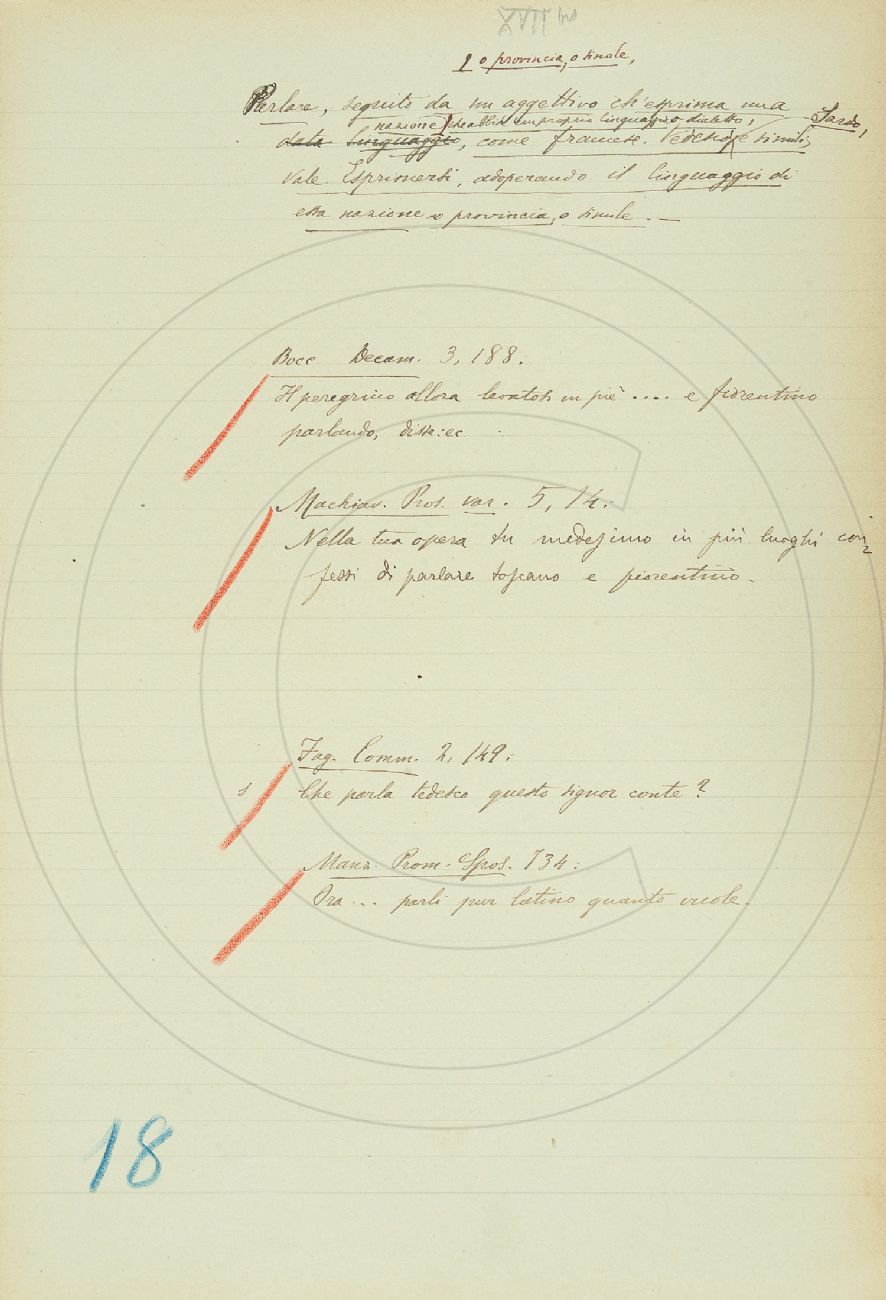 XVII bis
o provincia, o simile,
Parlare, seguito da un aggettivo ch'esprima una
nazione che abbia un proprio linguaggio o dialetto, Sardo,
data linguaggio, come francese, tedesco e simili,
vale Esprimersi, adoperando il linguaggio di
essa nazione o provincia, o simile. —
Bocc Decam. 3, 188:
Il peregrino allora levatosi in piè .... e fiorentino
parlando, disse: ec.
Machiav. Pros. var. 5, 14.
Nella tua opera tu medesimo in più luoghi con=
fessi di parlare toscano e fiorentino.
Fag. Comm. 2, 149:
Che parla tedesco questo signor conte?
Manz. Prom. Spos. 734:
Ora ... parli pur latino quanto vuole.
18